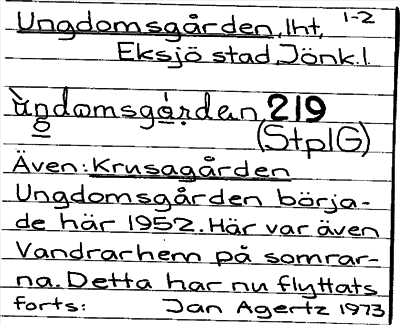 Ungdomsgården, lht, 1-2
Eksjö stad, Jönk.l.
ùngdomsgá̱rdan, 219
(StplG)
Även: Krusagården
Ungdomsgården börja-
de här 1952. Här var även
Vandrarhem på somrar-
na. Detta har nu flyttats
forts: Jan Agertz 1973